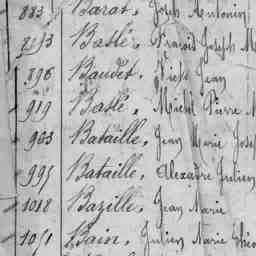 883 Barat, Joseph Antonin
2193 Baslé, François Joseph M
896 Baudet, Jean
919 Baslé, Michel Pierre M
963 Bataille, Jean Marie Jose
995 Bataille, Alexandre Julien
1018 Bazille, Jean Marie
1051 Bain, Julien Marie Théo